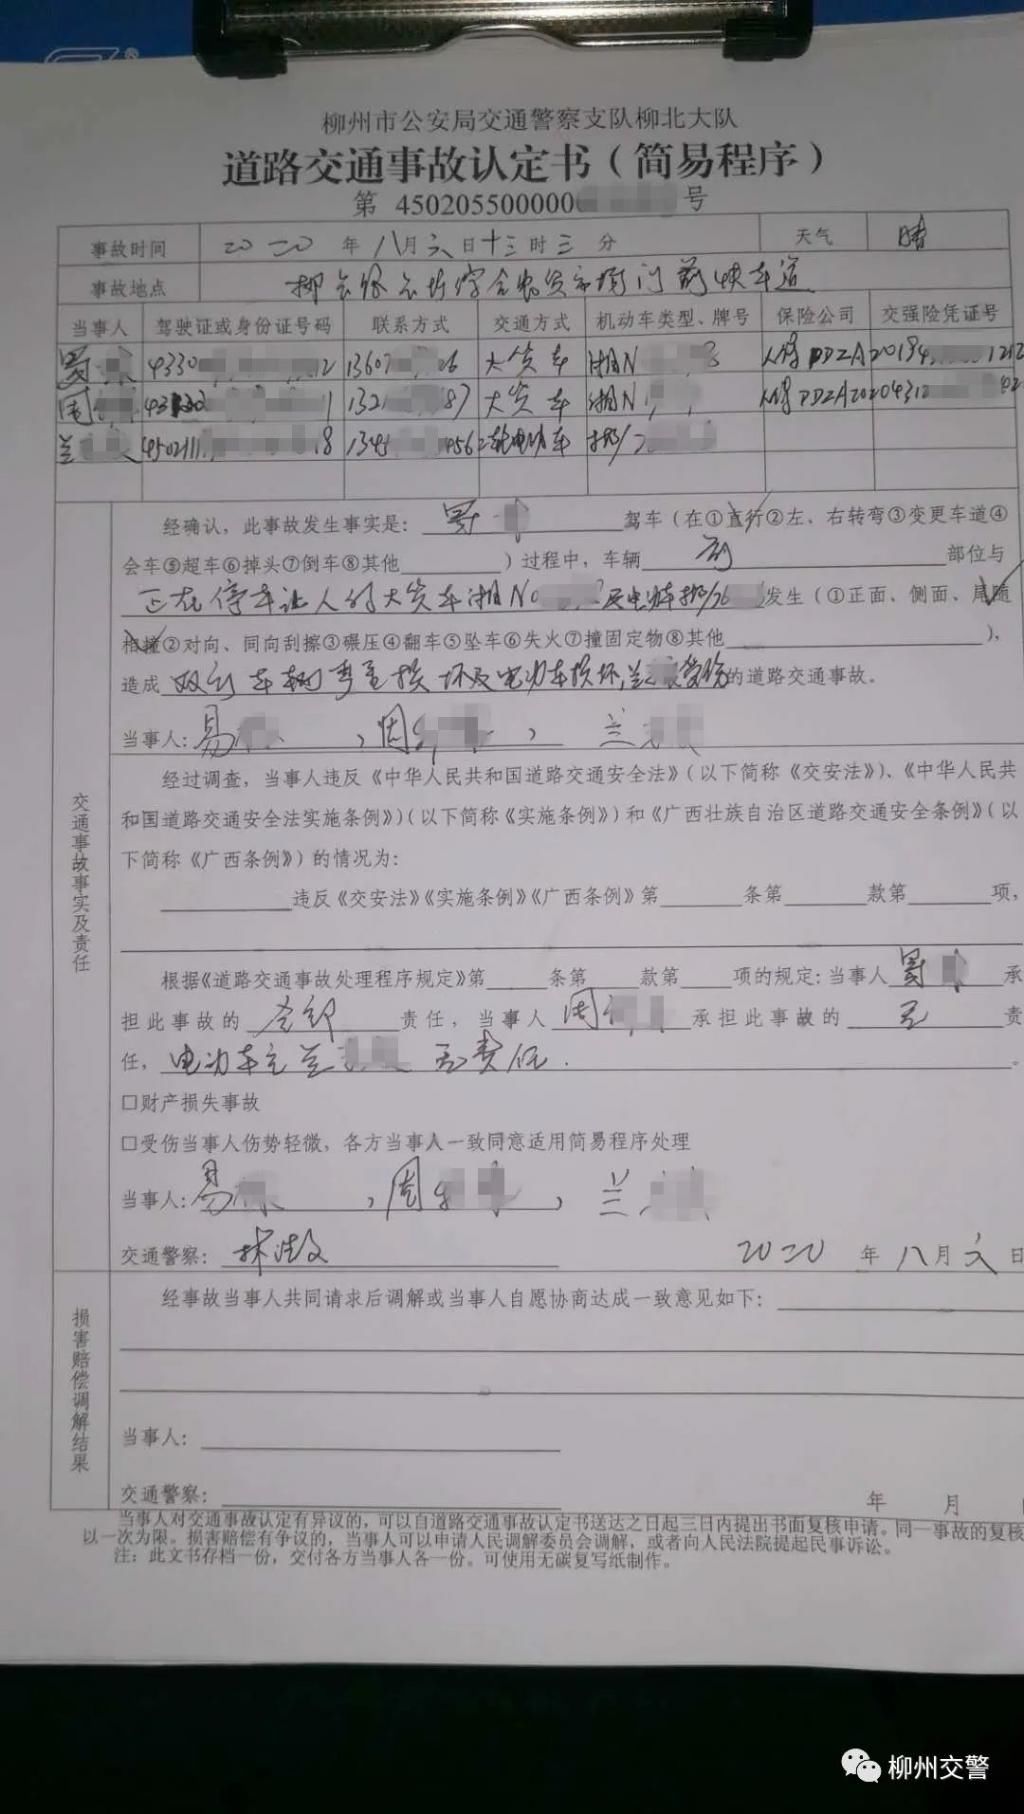 柳州市公安局交通警察支队柳北大队
道路交通事故认定书（简易程序）
第 450205500000 号
事故时间 二〇二〇 年 八 月 六 日 十三 时 三 分 天气 晴
事故地点 门前快车道
当事人 驾驶证或身份证号码 联系方式 交通方式 机动车类型、牌号 保险公司 交强险凭证号
易 4330 12 13607 6 大货车 湘N 8 人保 PDZA20194 1212
周 43 1 1321 87 大货车 湘N 人保 PDZA2020431 02
兰 4502111 18 1345 456 二轮电动车 柳/
经确认，此事故发生事实是： 易 驾车（在①直行②左、右转弯③变更车道④
会车⑤超车⑥掉头⑦倒车⑧其他 ）过程中，车辆 前 部位与
正在停车让人的大货车湘N0 及电动车柳/ 发生（①正面、侧面、尾随
相撞②对向、同向刮擦③碾压④翻车⑤坠车⑥失火⑦撞固定物⑧其他 ），
造成 双方车辆 损坏及电动车损坏,兰 受伤 的道路交通事故。
当事人: 易 , 周 , 兰
经过调查，当事人违反《中华人民共和国道路交通安全法》（以下简称《交安法》）、《中华人民共
和国道路交通安全法实施条例》）（以下简称《实施条例》）和《广西壮族自治区道路交通安全条例》（以
下简称《广西条例》）的情况为：
违反《交安法》《实施条例》《广西条例》第 条第 款第 项，
根据《道路交通事故处理程序规定》第 条第 款第 项的规定：当事人 易 承
担此事故的 全部 责任，当事人 周 承担此事故的 无 责
任， 电动车主兰 无责任. 。
□财产损失事故
□受伤当事人伤势轻微，各方当事人一致同意适用简易程序处理
当事人: 易 , 周 , 兰
交通警察: 林 二〇二〇 年 八 月 六 日
经事故当事人共同请求后调解或当事人自愿协商达成一致意见如下：
当事人:
交通警察:
年 月
交通事故事实及责任
损害赔偿调解结果
当事人对交通事故认定有异议的，可以自道路交通事故认定书送达之日起三日内提出书面复核申请。同一事故的复核
以一次为限。损害赔偿有争议的，当事人可以申请人民调解委员会调解，或者向人民法院提起民事诉讼。
注：此文书存档一份，交付各方当事人各一份。可使用无碳复写纸制作。
柳州交警